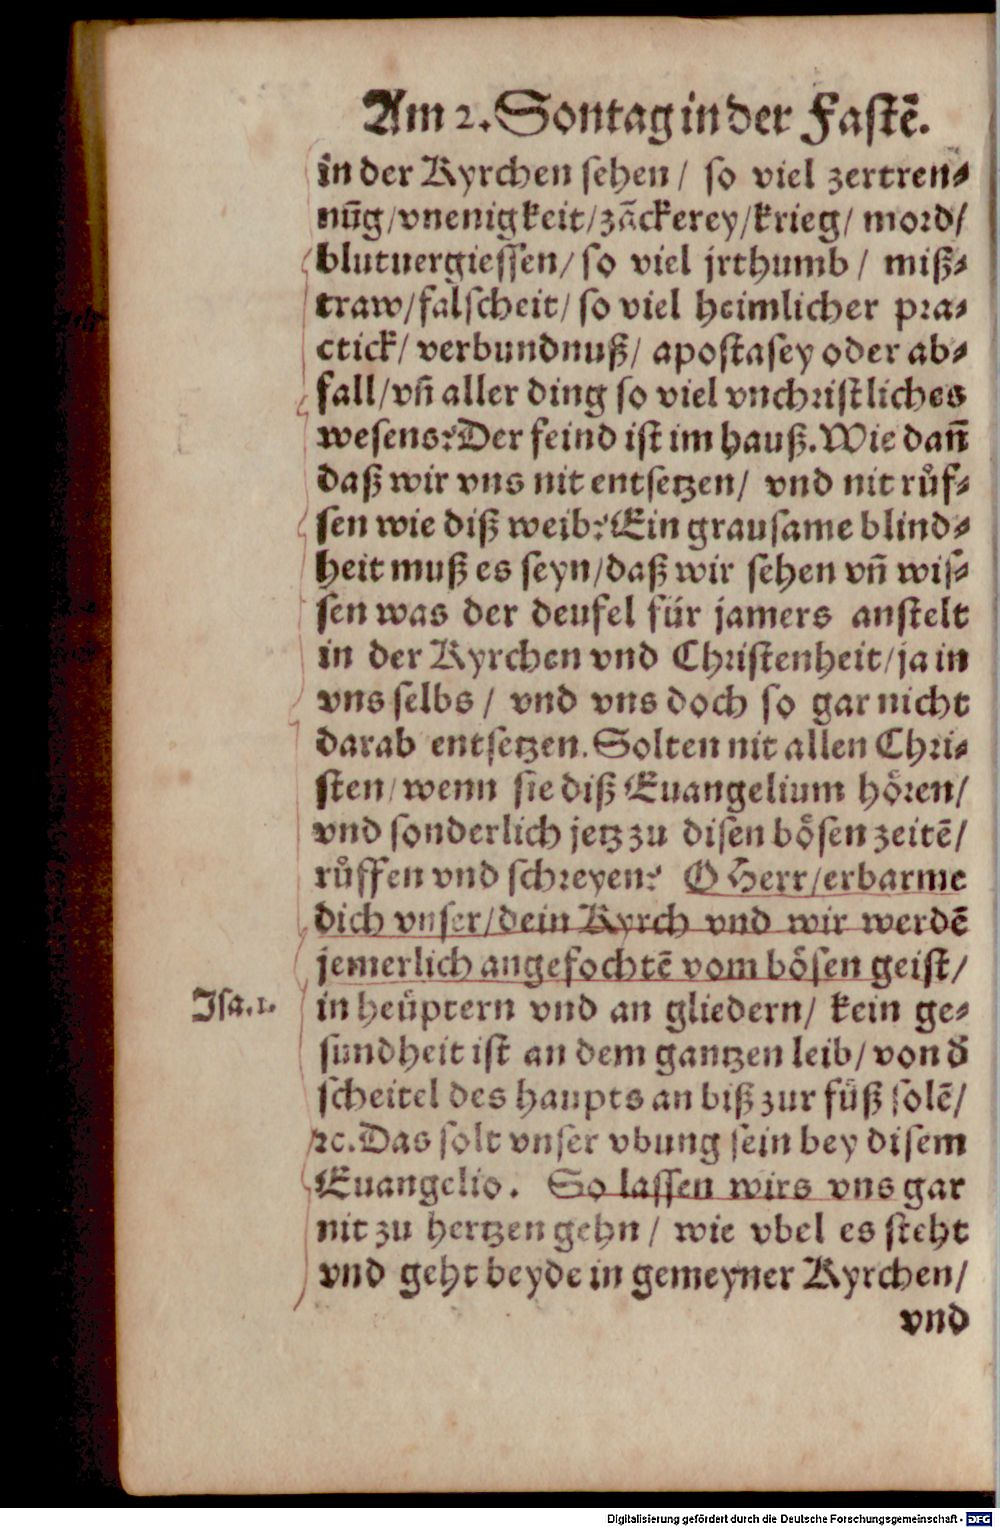 Am 2. Sontag in der Fastẽ.
in der Kyrchen sehen / so viel zertren⸗
nũg/vnenigkeit/zãckerey/krieg/ mord/
blutuergiessen/ so viel jrthumb / miß⸗
traw/falscheit/ so viel heimlicher pra⸗
ctick/ verbundnuß/ apostasey oder ab⸗
fall/vñ aller ding so viel vnchristliches
wesens? Der feind ist im hauß. Wie dañ
daß wir vns nit entsetzen/ vnd nit růf⸗
sen wie diß weib? Ein grausame blind⸗
heit muß es seyn/daß wir sehen vñ wis⸗
sen was der deufel für jamers anstelt
in der Kyrchen vnd Christenheit/ja in
vns selbs / vnd vns doch so gar nicht
darab entsetzen. Solten nit allen Chri⸗
sten/wenn sie diß Euangelium hören/
vnd sonderlich jetz zu disen bösen zeitẽ/
růffen vnd schreyen? O Herr/erbarme
dich vnser/dein Kyrch vnd wir werdẽ
jemerlich angefochtẽ vom bösen geist/
Isa.1.
in heüptern vnd an gliedern/ kein ge⸗
sundheit ist an dem gantzen leib/ von d̃
scheitel des haupts an biß zur füß solẽ/
ꝛc. Das solt vnser vbung sein bey disem
Euangelio. So lassen wirs vns gar
nit zu hertzen gehn / wie vbel es steht
vnd geht beyde in gemeyner Kyrchen/
vnd
Digitalisierung gefördert durch die Deutsche Forschungsgemeinschaft - DFG